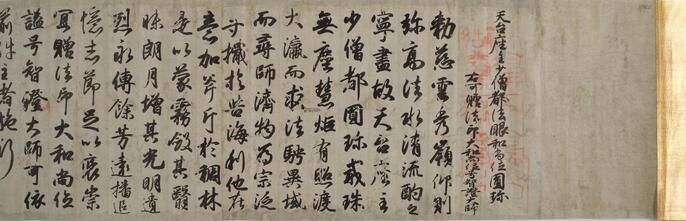 天台座主少僧都法眼和尚位圓珎
右可贈法印大和尚位号智證大師
勅慈雲秀嶺仰則
弥高法水清流酌之
寧盡故天台座主
少僧都圓珎戒珠
無塵慧炬有照渡
大瀛而求法騁異域
而尋師濟物為宗泛
寸檝於苦海利他在
意加斧斤於稠林
是以蒙霧斂其翳
昧朗月増其光明遺
烈永傳餘芳遠播追
憶志節足以褒崇
宜贈法印大和尚位
謚号智證大師可依
前件主者施行